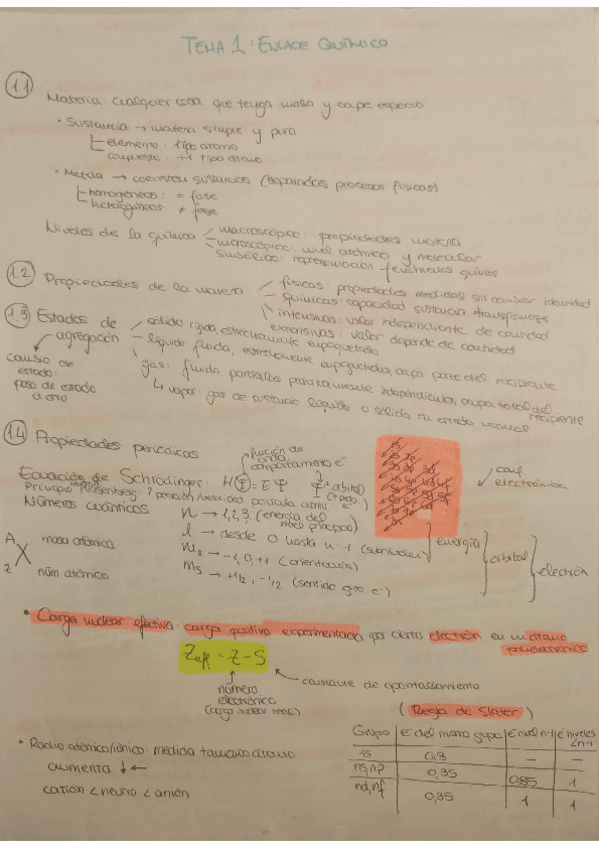 TEMA 1: ENLACE QUÍMICO
1.1
Materia: cualquier cosa que tenga masa y ocupe espacio
• Sustancia → materia simple y pura
elemento: 1 tipo átomo
compuesto: +1 tipo átomo
• Mezcla → coexisten sustancias (separadas procesos físicos)
homogéneas: = fase
heterogéneas ≠ fase
Niveles de la química
macroscópico: propiedades materia
microscópico: nivel atómico y molecular
simbólico: representación fenómenos químicos
1.2 Propiedades de la materia
físicas: propiedades medidas sin cambiar identidad
químicas: capacidad sustancia transformarse
intensivas: valor independiente de cantidad
extensivas: valor depende de cantidad
1.3 Estados de agregación
sólido: rígida, estrechamente empaquetada
líquido: fluida, estrechamente empaquetadas, ocupa parte del recipiente
gas: fluida, partículas prácticamente independientes, ocupa total del recipiente
↳ vapor: gas de sustancia líquida o sólida en estado normal
cambio de estado: paso de estado a otro
1.4 Propiedades periódicas
función de onda: comportamiento e⁻
Ecuación de Schrödinger: HΨ = EΨ
Ψ² orbital
Principio Heisenberg: ? posición/velocidad partícula
Números cuánticos
n → 1,2,3 (energía del nivel principal)
l → desde 0 hasta n-1 (subniveles)
m → -1, 0, +1 (orientación)
ms → +1/2, -1/2 (sentido giro e⁻)
energía
orbital
electrón
conf electrónica
A masa atómica
X
Z núm atómico
• Carga nuclear efectiva: carga positiva experimentada por cierto electrón en un átomo polielectrónico
Zeff = Z - S
número electrónico
(carga nuclear real)
constante de apantallamiento
(Regla de Slater)
Grupo e⁻ del mismo grupo e⁻ nivel n-1 e⁻ niveles <n-1
1s 0,3 — —
ns, np 0,35 0,85 1
nd, nf 0,35 1 1
• Radio atómico/iónico: medida tamaño átomo
aumenta ↓ ←
catión < neutro < anión